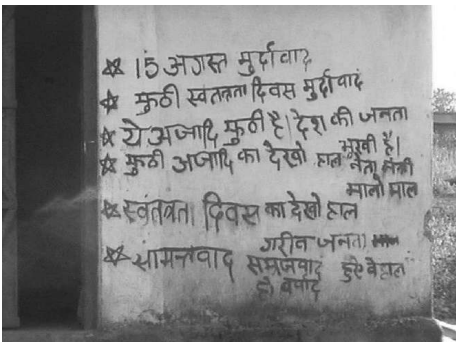 ☆ 15 अगस्त मुर्दावाद
☆ फुठी स्वतत्रता दिवस मुर्दावाद
☆ ये अजादि फुठी है। देश की जनता
भुखी है।
☆ फुठी अजादि का देखो हाल नेता मंत्री
मानो माल
☆ स्वतत्रता दिवस का देखो हाल
गरीव जनता
हुऐ वेहाल
☆ सामन्तवाद समाजवाद
हो वर्वाद